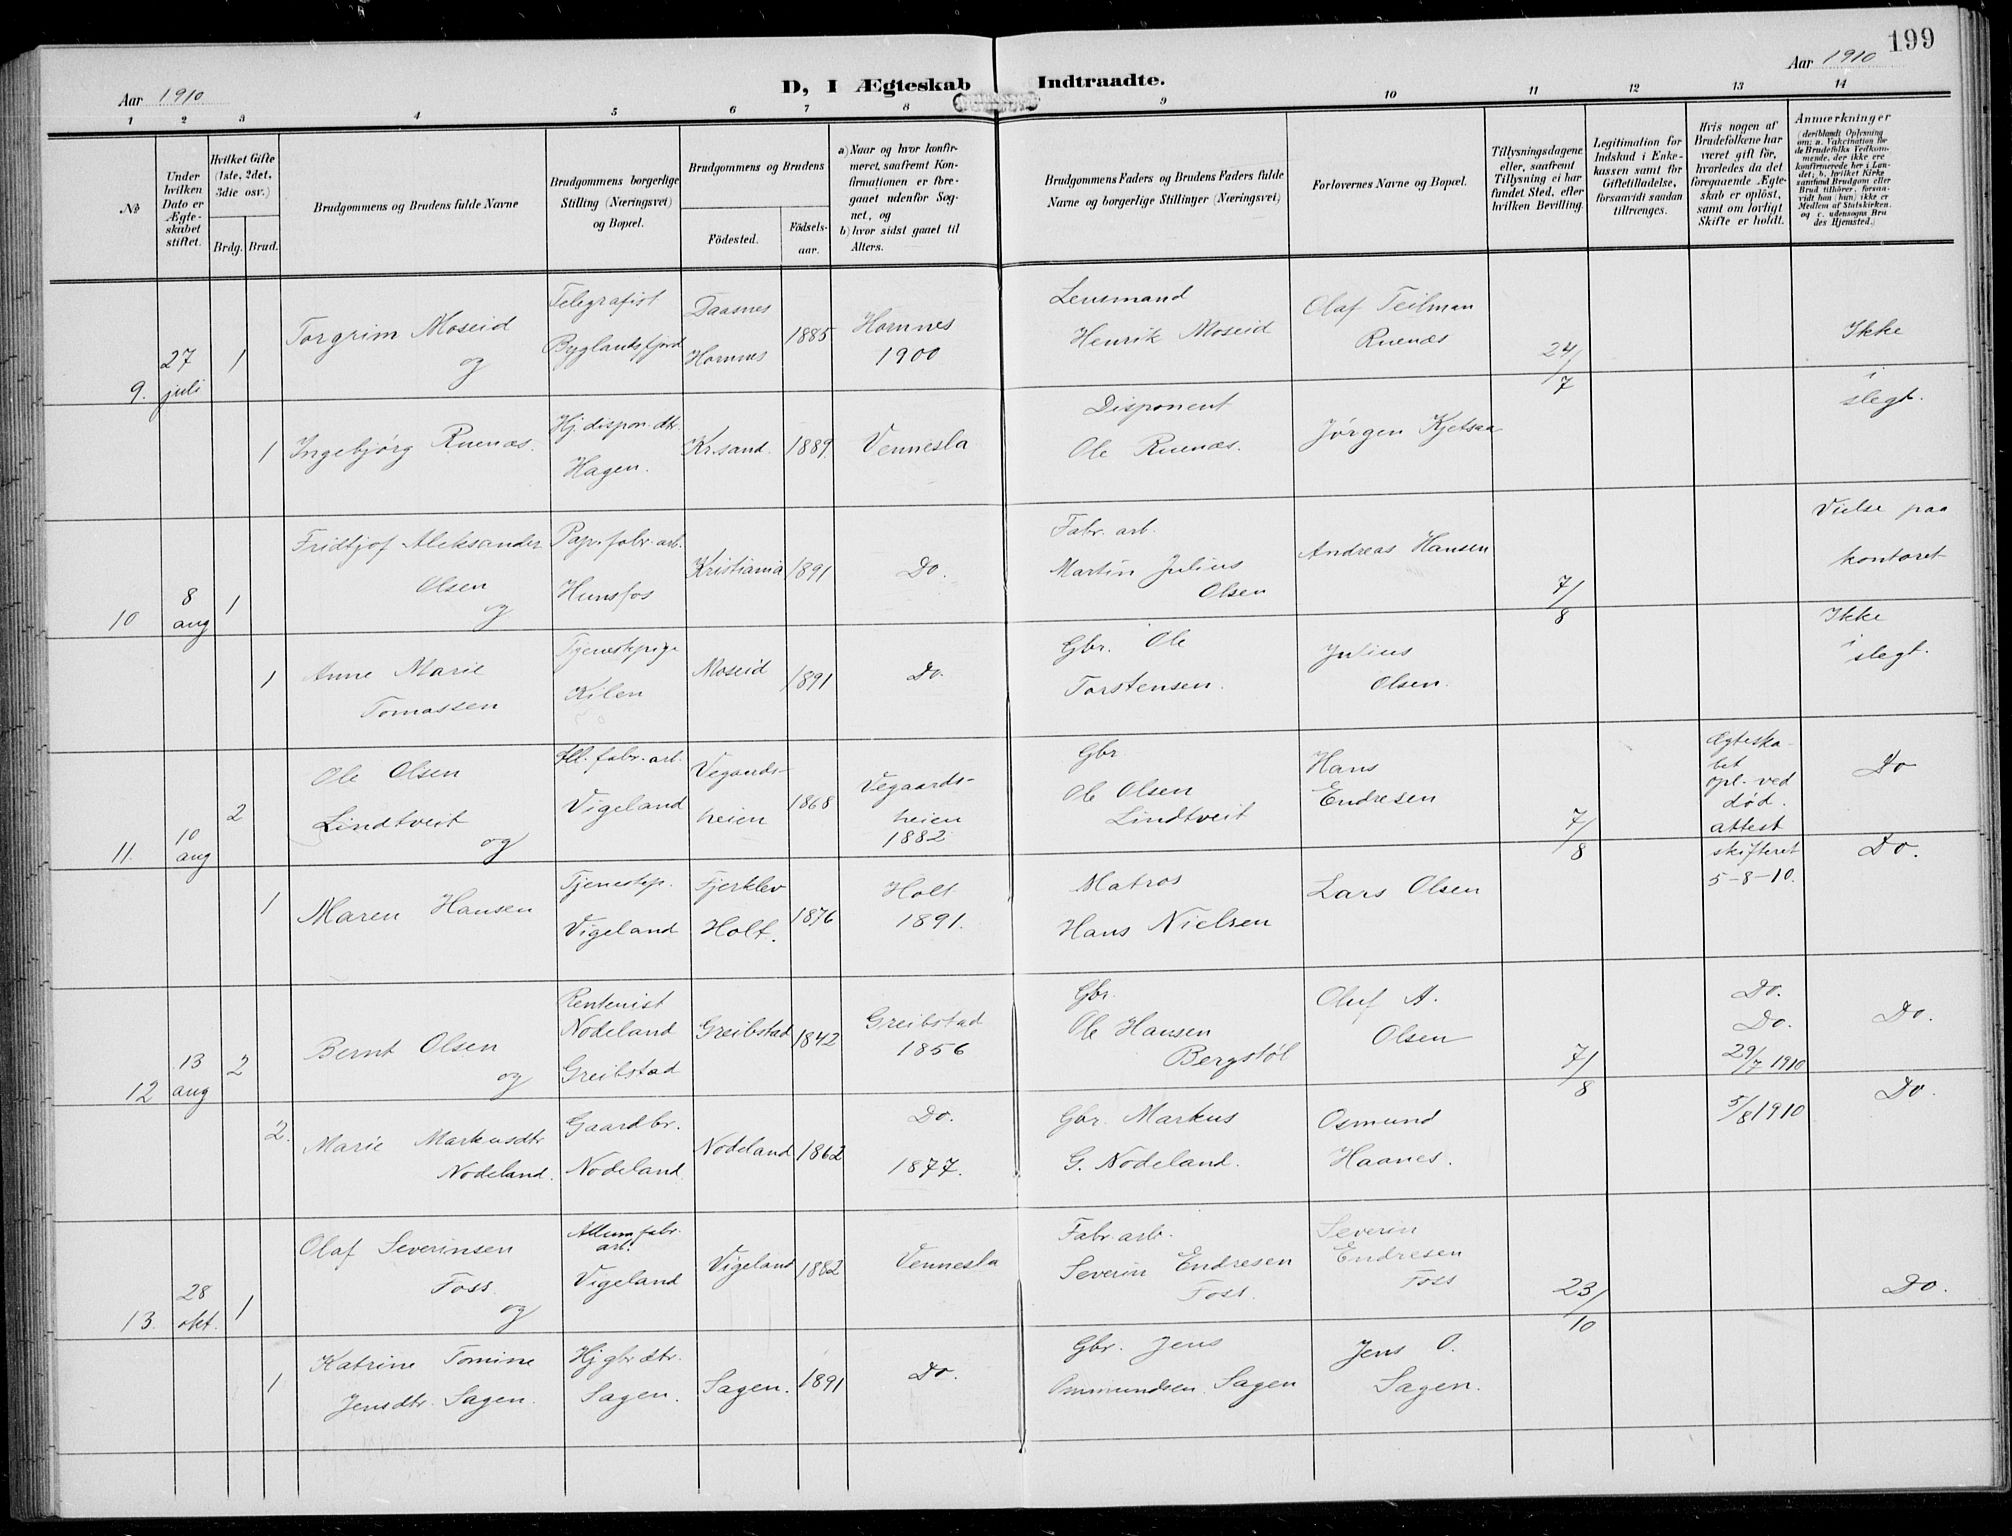 199
Aar 1910
D, I Ægteskab Indtraadte.
Aar 1910
1 2 3 4 5 6 7 8 9 10 11 12 13 14
No
Under hvilken Dato er Ægteskabet stiftet.
Hvilket Gifte (1ste, 2det, 3die osv.)
Brdg. Brud.
Brudgommens og Brudens fulde Navne
Brudgommens borgerlige Stilling (Næringsvei) og Bopæl.
Brudgommens og Brudens
Födested.
Födsels-aar.
a) Naar og hvor konfirmeret, saafremt Konfirmationen er foregaaet udenfor Sognet, og
b) hvor sidst gaaet til Alters.
Brudgommens Faders og Brudens Faders fulde Navne og borgerlige Stillinger (Næringsvei)
Forlovernes Navne og Bopæl.
Tillysningsdagene eller, saafremt Tillysning ei har fundet Sted, efter hvilken Bevilling.
Legitimation for Indskud i Enkekassen samt for Giftetilladelse, forsaavidt saadan tiltrænges.
Hvis nogen af Brudefolkene har været gift för, hvorledes da det foregaaende Ægteskab er oplöst, samt om lovligt Skifte er holdt.
Anmerkninger
(deriblandt Oplysning om: a. Vakcination for de Brudefolks Vedkommende, der ikke ere konfirmerede her i Landet, b. hvilket Kirkesamfund Brudgom eller Brud tilhörer, forsaavidt han (hun) ikke er Medlem af Statskirken, og c. udensogns Brudes Hjemsted.)
9. 27 juli 1 Torgrim Moseid og
Telegrafist Byglandsfjord
Daasnes Hornnes 1885
Hornnes 1900
Lensmand Henrik Moseid
Olaf Teilman Ruenæs
24/7
Ikke i slegt.
1 Ingebjørg Ruenæs.
Hj. dispon. dtr. Hagen.
Kr.sand. 1889
Vennesla
Disponent Ole Ruenæs.
Jørgen Kjetsaa
10 8 aug 1 Fridtjof Aleksander Olsen og
Pap. fabr. arb. Hunsfos
Kristiania 1891
Do.
Fabr. arb. Martin Julius Olsen
Andreas Hansen
7/8
Vielse paa kontoret
Ikke i slegt.
1 Anne Marie Tomassen
Tjenestepige Kilen
Moseid 1891
Do.
Gbr. Ole Torstensen.
Julius Olsen.
11. 10 aug 2 Ole Olsen Lindtveit og
All. fabr. arb. Vigeland
Vegaardsheien 1868
Vegaardsheien 1882
Gbr Ole Olsen Lindtveit
Hans Endresen
7/8
Ægteskabet opl. ved død. attest skifteret 5-8-10.
Do
1 Maren Hansen
Tjenestep. Vigeland
Fjerklev Holt. 1876
Holt 1891.
Matros Hans Nielsen
Lars Olsen
Do.
12 13 aug 2 Bernt Olsen og
Rentenist Nodeland Greibstad
Greibstad 1842
Greibstad 1856
Gbr. Ole Hansen Bergstøl
Oluf A. Olsen
7/8
Do. Do. 29/7 1910
Do.
2. Marie Markusdtr Nodeland.
Gaardbr. Nodeland
Nodeland 1862
Do. 1877.
Gbr. Markus G. Nodeland.
Osmund Haanes.
5/8 1910
Do.
13. 28 okt. 1 Olaf Severinsen Foss. og
Allum.fabr. arb. Vigeland
Vigeland 1882
Vennesla
Fabr. arb. Severin Endresen Foss.
Severin Endresen Foss
23/10
Do.
1 Katrine Tomine Jensdtr. Sagen.
Hj gbr. dtr. Sagen.
Sagen. 1891
Do.
Gbr. Jens Ommundsen Sagen
Jens O. Sagen.